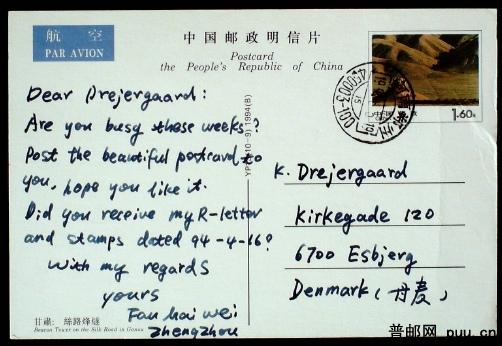 航 空
PAR AVION
中国邮政明信片
Postcard
the People's Republic of China
1.60元
450003
Dear Drejergaard:
Are you busy these weeks?
Post the beautiful postcard to
you, hope you like it.
Did you receive my R-letter
and stamps dated 94-4-16?
With my regards
yours
Fan hai wei
Zhengzhou
YP (10-9) 1994(B)
K. Drejergaard
Kirkegade 120
6700 Esbjerg
Denmark (丹麦)
甘肅: 絲路烽燧
Beacon Tower on the Silk Road in Gansu
普邮网 puu.cn